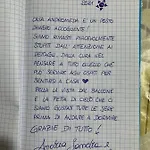 2021
CASA ANDROMEDA È UN POSTO
DAVVERO ACCOGLIENTE!
SIAMO RIMASTI PIACEVOLMENTE
STUPITI DALL'ATTENZIONE AI
DETTAGLI, DALLA CURA NEL
PENSARE A TUTTO QUELLO CHE
PUÒ SERVIRE AGLI OSPITI PER
SENTIRSI A CASA ♥
BELLA LA VISTA DAL BALCONE
E LA FETTA DI CIELO CHE CI
SIAMO GODUTI TUTTE LE SERE
PRIMA DI ANDARE A DORMIRE
GRAZIE DI TUTTO!
Andrea